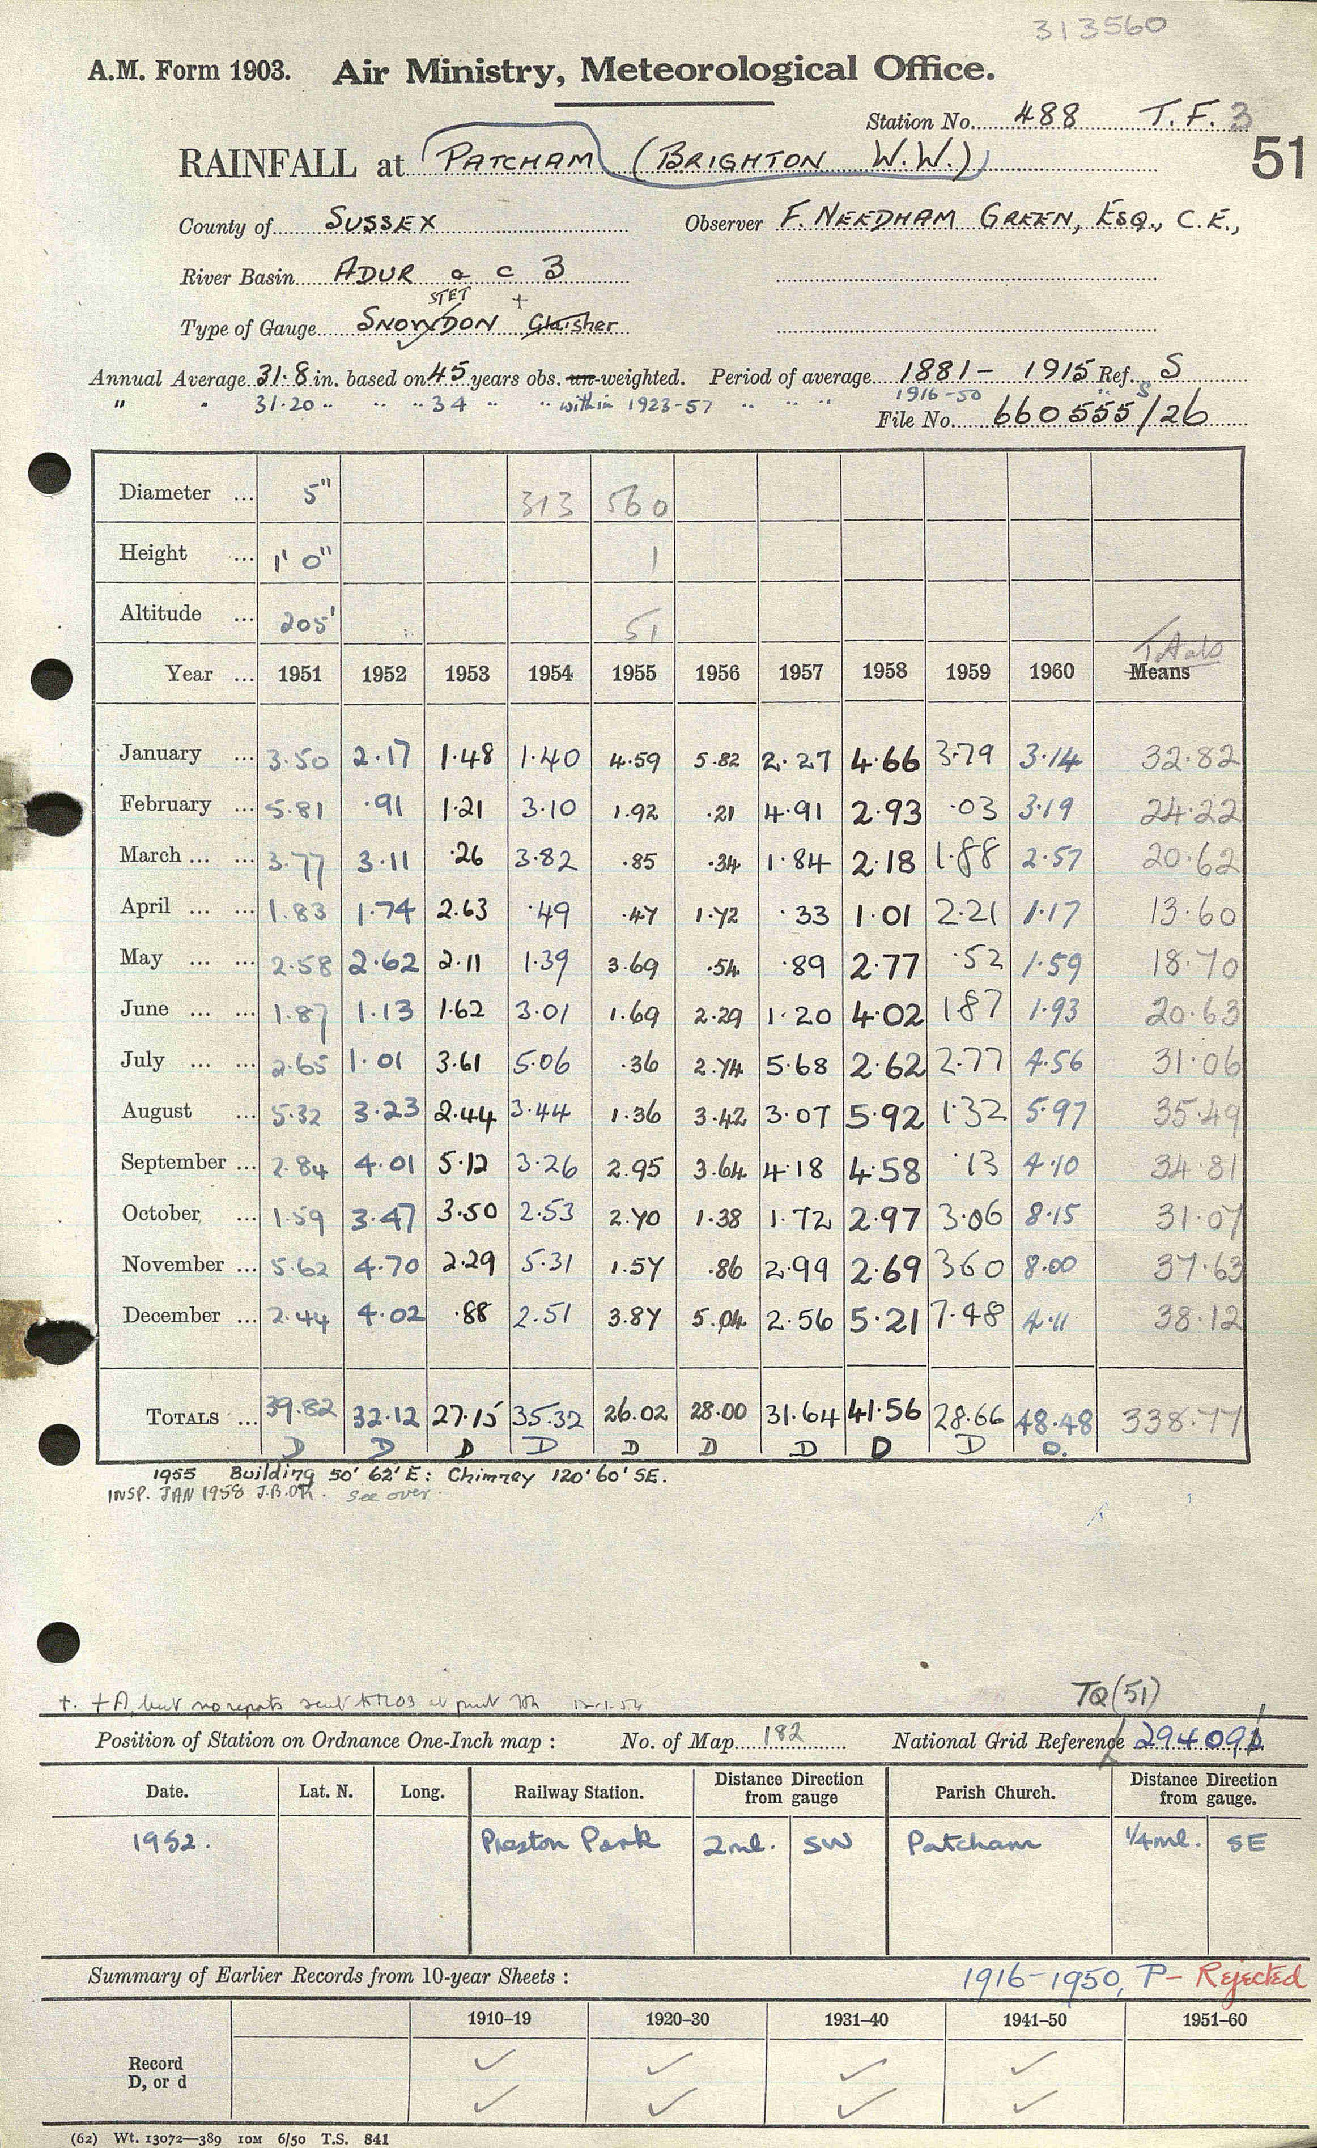 313560
A.M. Form 1903. Air Ministry, Meteorological Office.
Station No. 488 T.F. 3
RAINFALL at PATCHAM (BRIGHTON W.W.) 51
County of SUSSEX Observer F. NEEDHAM GREEN, ESQ., C.E.,
River Basin ADUR a c 3
STET +
Type of Gauge SNOWDON Glaisher
Annual Average 31.8 in. based on 45 years obs. un-weighted. Period of average 1881 - 1915 Ref. S
" " 31.20 " " " 34 " " within 1923-57 " " " 1916-50 " S
File No. 660555/26
Diameter ... 5" 313 560
Height ... 1' 0" 1
Altitude ... 205' 51
Totals
Year ... 1951 1952 1953 1954 1955 1956 1957 1958 1959 1960 Means
January ... 3.50 2.17 1.48 1.40 4.59 5.82 2.27 4.66 3.79 3.14 32.82
February ... 5.81 .91 1.21 3.10 1.92 .21 4.91 2.93 .03 3.19 24.22
March ... ... 3.77 3.11 .26 3.82 .85 .34 1.84 2.18 1.88 2.57 20.62
April ... ... 1.83 1.74 2.63 .49 .47 1.72 .33 1.01 2.21 1.17 13.60
May ... ... 2.58 2.62 2.11 1.39 3.69 .54 .89 2.77 .52 1.59 18.70
June ... ... 1.87 1.13 1.62 3.01 1.69 2.29 1.20 4.02 1.87 1.93 20.63
July ... ... 2.65 1.01 3.61 5.06 .36 2.74 5.68 2.62 2.77 4.56 31.06
August ... 5.32 3.23 2.44 3.44 1.36 3.42 3.07 5.92 1.32 5.97 35.49
September ... 2.84 4.01 5.12 3.26 2.95 3.64 4.18 4.58 .13 4.10 34.81
October ... 1.59 3.47 3.50 2.53 2.70 1.38 1.72 2.97 3.06 8.15 31.07
November ... 5.62 4.70 2.29 5.31 1.57 .86 2.99 2.69 3.60 8.00 37.63
December ... 2.44 4.02 .88 2.51 3.87 5.04 2.56 5.21 7.48 4.11 38.12
TOTALS ... 39.82 32.12 27.15 35.32 26.02 28.00 31.64 41.56 28.66 48.48 338.77
D D D D D D D D D D.
1955 Building 50' 62' E: Chimney 120' 60' SE.
INSP. JAN 1958 See over.
but no reports sent
TQ(51)
Position of Station on Ordnance One-Inch map : No. of Map 182 National Grid Reference 29409
Date. Lat. N. Long. Railway Station. Distance from gauge Direction Parish Church. Distance from gauge. Direction
1952. Preston Park 2ml. SW Patcham 1/4ml. SE
Summary of Earlier Records from 10-year Sheets : 1916-1950, P- Rejected
1910–19 1920–30 1931–40 1941–50 1951–60
Record ✓ ✓ ✓ ✓
D, or d ✓ ✓ ✓ ✓
(62) Wt. 13072—389 10M 6/50 T.S. 841